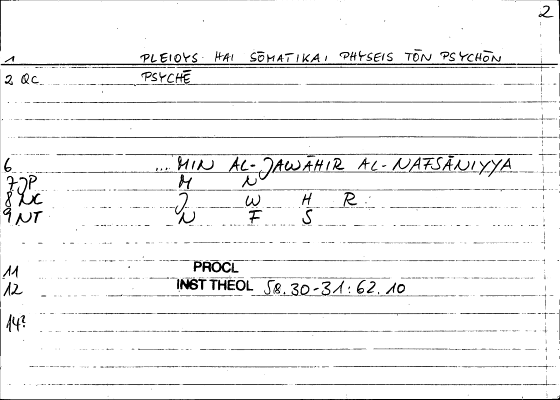 2
1 PLEIOYS HAI SŌMATIKAI PHYSEIS TŌN PSYCHŌN
2 QC PSYCHĒ
6 ... MIN AL-JAWĀHIR AL-NAFSĀNIYYA
7 JP M N
8 NC J W H R
9 NT N F S
11 PROCL
12 INST THEOL 58.30-31: 62.10
14?